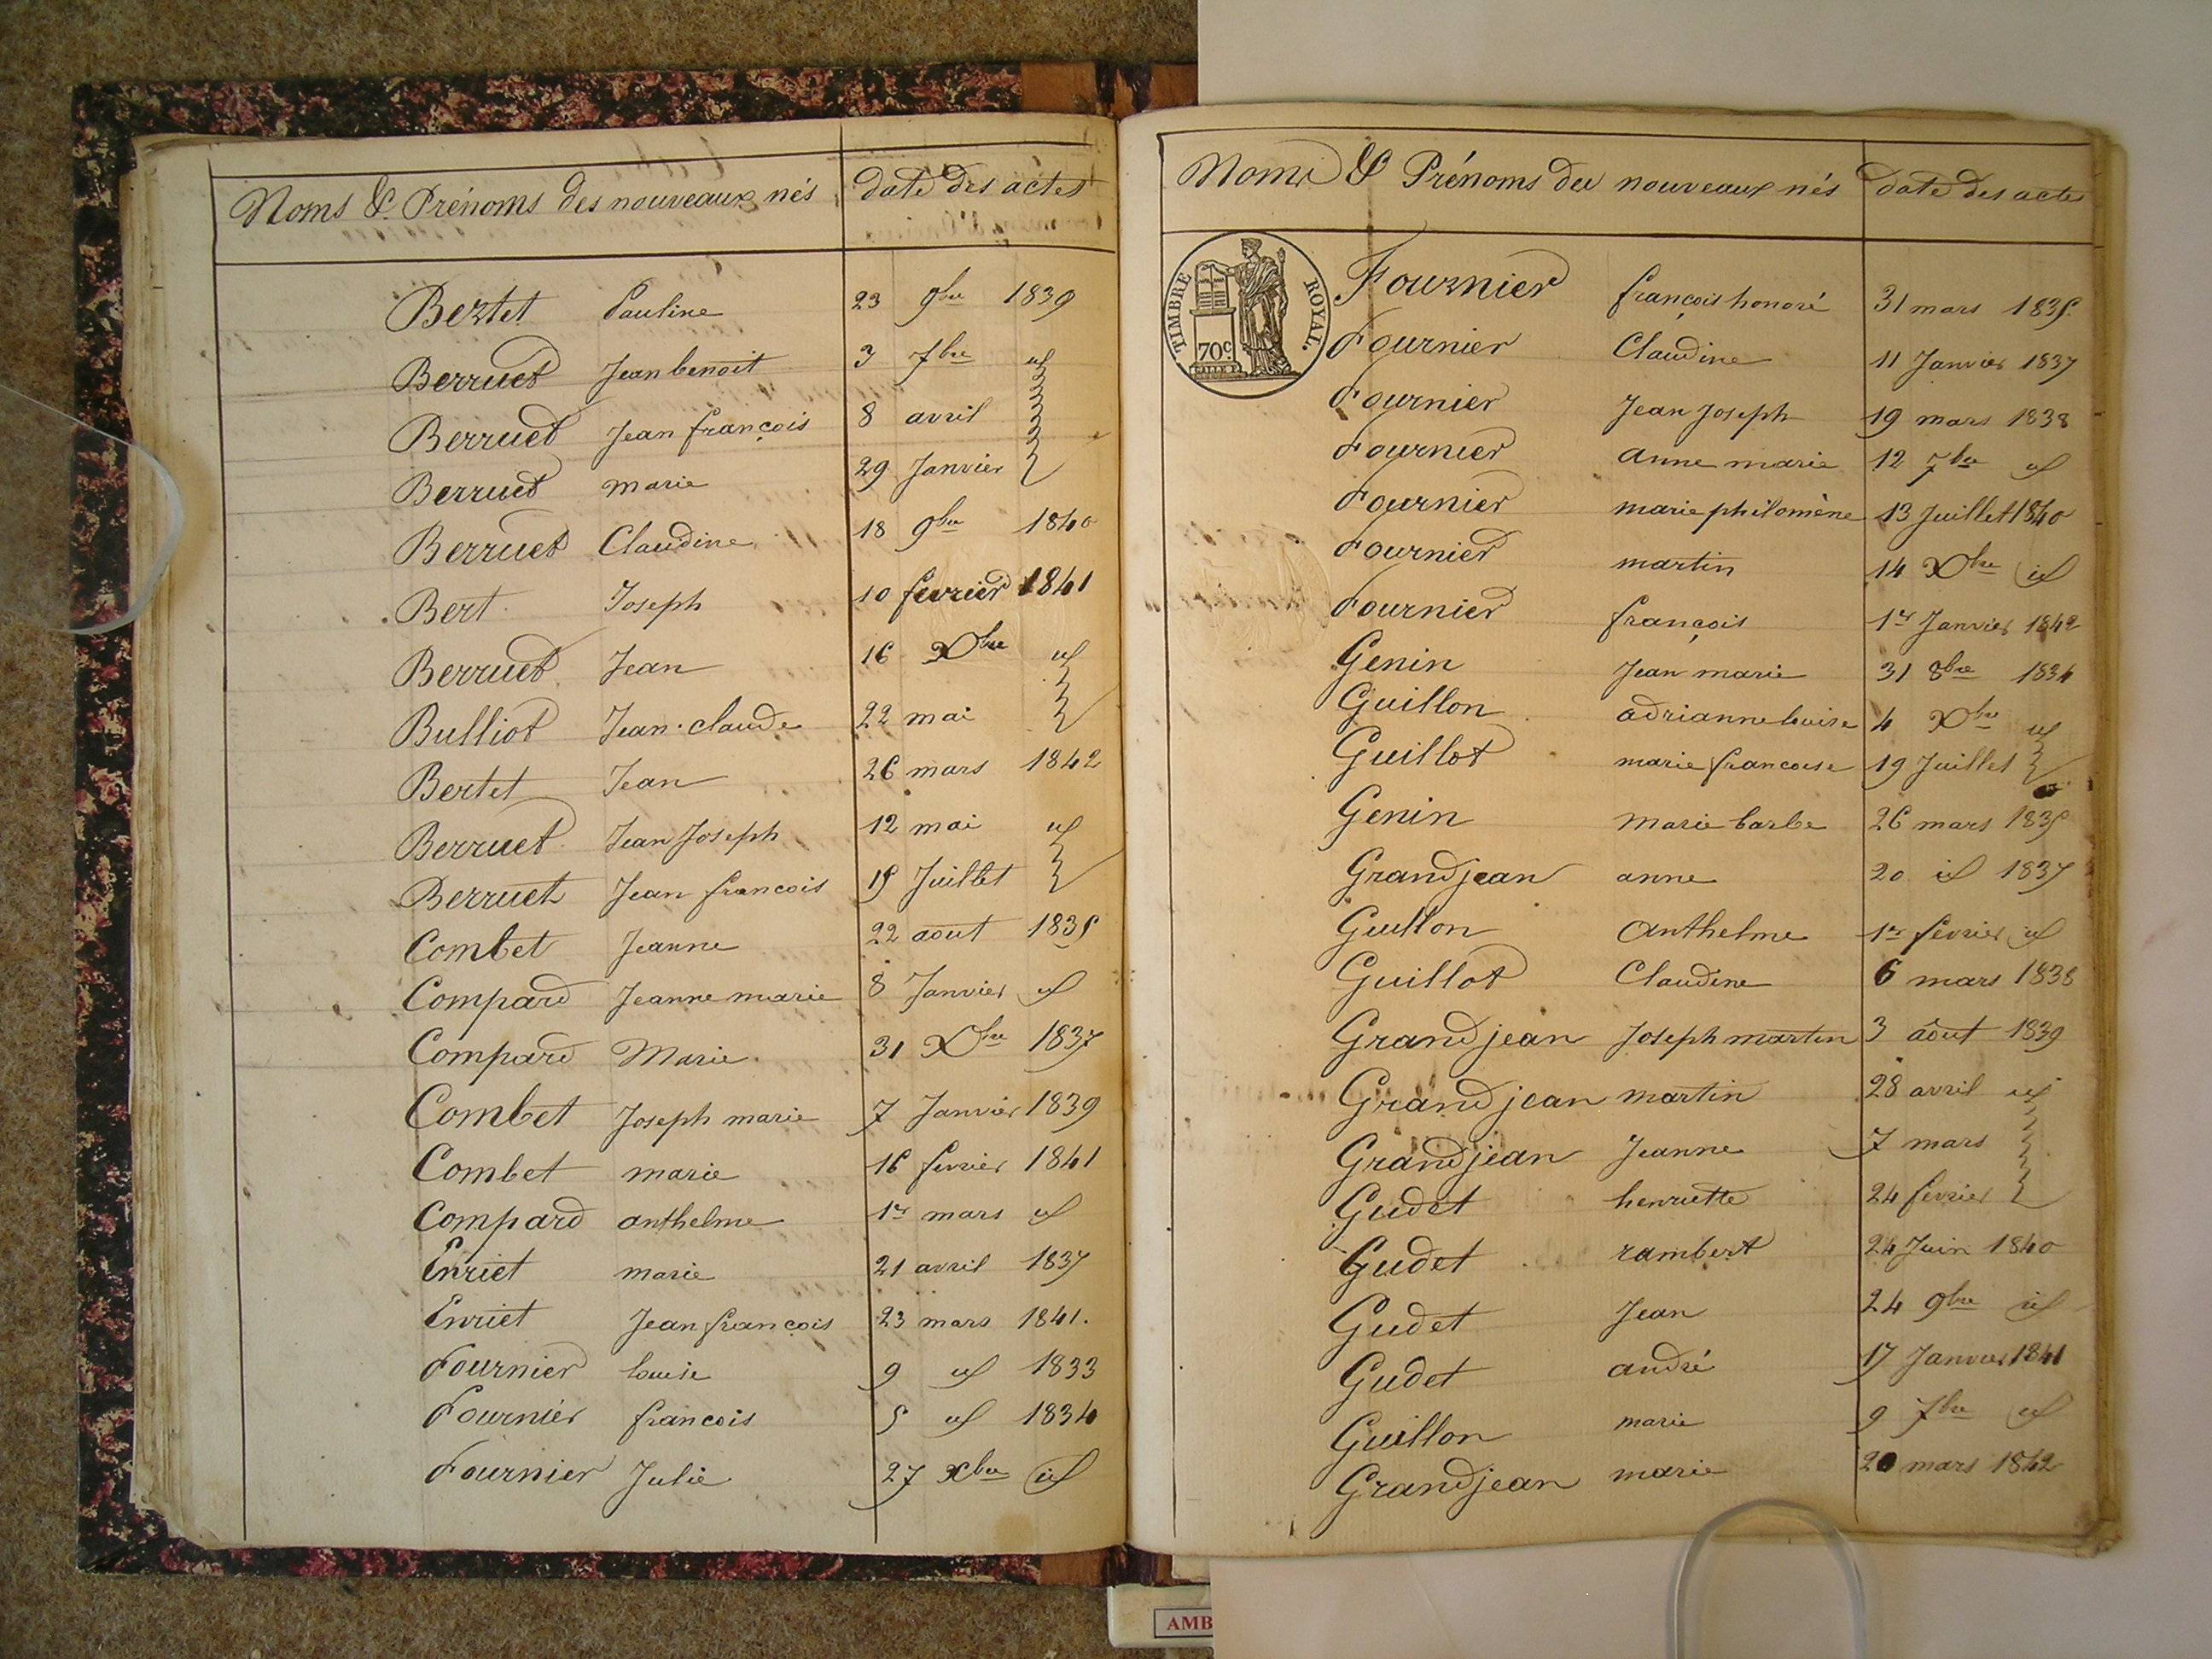 Noms & Prénoms des nouveaux nés date des actes
Bertet Pauline 23 9bre 1839
Berruet Jean benoit 3 7bre id
Berruet Jean françois 8 avril
Berruet marie 29 Janvier
Berruet Claudine 18 9bre 1840
Bert Joseph 10 fevrier 1841
Berruet Jean 16 Xbre id
Bulliot Jean-claude 22 mai
Bertet Jean 26 mars 1842
Berruet Jean Joseph 12 mai id
Berruet Jean francois 15 Juillet
Combet Jeanne 22 aout 1835
Compard Jeanne marie 8 Janvier id
Compard Marie 31 Xbre 1837
Combet Joseph marie 7 Janvier 1839
Combet marie 16 fevrier 1841
Compard anthelme 1er mars id
Enriet marie 21 avril 1837
Enriet Jean françois 23 mars 1841.
Fournier louise 9 id 1833
Fournier francois 5 id 1834
Fournier Julie 27 Xbre id
Noms & Prénoms des nouveaux nés date des actes
TIMBRE ROYAL.
70c
Fournier françois honoré 31 mars 1835
Fournier Claudine 11 Janvier 1837
Fournier Jean Joseph 19 mars 1838
Fournier anne marie 12 7bre id
Fournier marie philomène 13 Juillet 1840
Fournier martin 14 Xbre id
Fournier françois 1er Janvier 1842
Genin Jean marie 31 8bre 1834
Guillon adrianne louise 4 Xbre id
Guillot marie francoise 19 Juillet
Genin marie barbe 26 mars 1835
Grandjean anne 20 id 1837
Guillon anthelme 1er fevrier id
Guillot Claudine 6 mars 1838
Grandjean Joseph martin 3 aout 1839
Grandjean martin 28 avril id
Grandjean Jeanne 7 mars
Gudet henriette 24 fevrier
Gudet rambert 24 Juin 1840
Gudet Jean 24 9bre id
Gudet andré 17 Janvier 1841
Guillon marie 9 7bre id
Grandjean marie 20 mars 1842
AMB